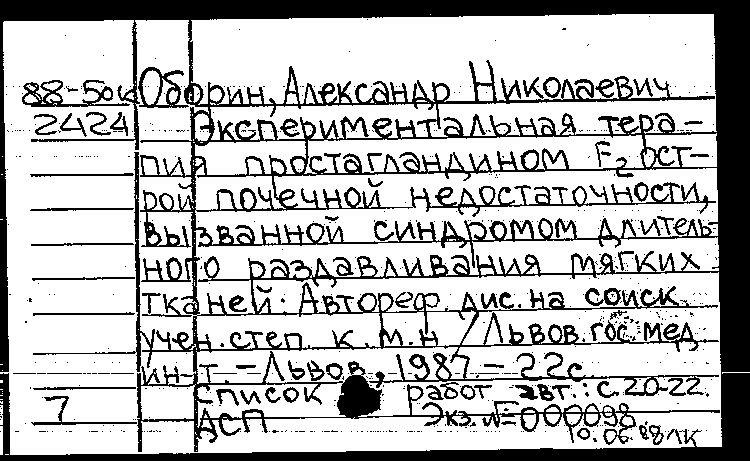 88-50к Оборин, Александр Николаевич
2424 Экспериментальная тера-
пия простагландином F2 ост-
рой почечной недостаточности,
вызванной синдромом длитель-
ного раздавливания мягких
тканей: Автореф. дис. на соиск.
учен. степ. к.м.н. / Львов. гос. мед.
ин-т. - Львов, 1987. - 22с.
Список работ авт.: с. 20-22.
7 ДСП. Экз. №000098
10.06.88 ЛК